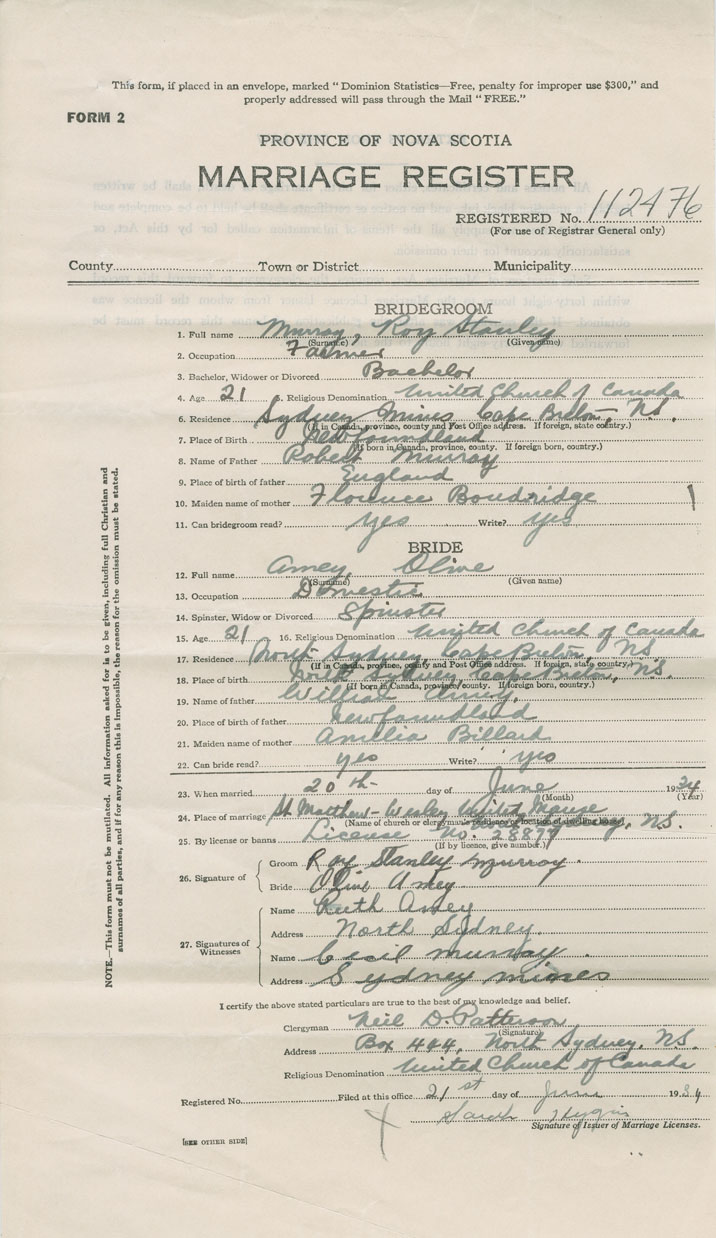 This form, if placed in an envelope, marked "Dominion Statistics—Free, penalty for improper use $300," and
properly addressed will pass through the Mail "FREE."
FORM 2
PROVINCE OF NOVA SCOTIA
MARRIAGE REGISTER
REGISTERED No. 112476
(For use of Registrar General only)
County Town or District Municipality
BRIDEGROOM
1. Full name Murray, Roy Stanley
(Surname) (Given name)
2. Occupation Farmer
3. Bachelor, Widower or Divorced Bachelor
4. Age 21 5. Religious Denomination United Church of Canada
6. Residence Sydney Mines Cape Breton, N.S.
(If in Canada, province, county and Post Office address. If foreign, state country.)
7. Place of Birth Newfoundland
(If born in Canada, province, county. If foreign born, country.)
8. Name of Father Robert Murray
9. Place of birth of father England
10. Maiden name of mother Florence Boudridge
11. Can bridegroom read? Yes Write? Yes
BRIDE
12. Full name Amey, Olive
(Surname) (Given name)
13. Occupation Domestic
14. Spinster, Widow or Divorced Spinster
15. Age 21 16. Religious Denomination United Church of Canada
17. Residence North Sydney, Cape Breton, NS
(If in Canada, province, county and Post Office address. If foreign, state country.)
18. Place of birth North Sydney, Cape Breton, N.S.
(If born in Canada, province, county. If foreign born, country.)
19. Name of father William Amey,
20. Place of birth of father Newfoundland
21. Maiden name of mother Amelia Billard
22. Can bride read? yes Write? yes
23. When married 20th day of June 1934
(Month) (Year)
24. Place of marriage St Matthew-Wesley United Manse
North Sydney, N.S.
(Name of church or clergyman's residence or location of dwelling house)
25. By license or banns License No. 28879
(If by licence, give number.)
26. Signature of
Groom Roy Stanley Murray.
Bride Olive Amey
27. Signatures of Witnesses
Name Ruth Amey
Address North Sydney.
Name Cecil Murray.
Address Sydney mines
I certify the above stated particulars are true to the best of my knowledge and belief.
Clergyman Neil D. Patterson
(Signature)
Address Box 444, North Sydney. N.S.
Religious Denomination United Church of Canada
Registered No. Filed at this office 21st day of June 1934
Sarah
Signature of Issuer of Marriage Licenses.
[SEE OTHER SIDE]
NOTE.—This form must not be mutilated. All information asked for is to be given, including full Christian and
surnames of all parties, and if for any reason this is impossible, the reason for the omission must be stated.